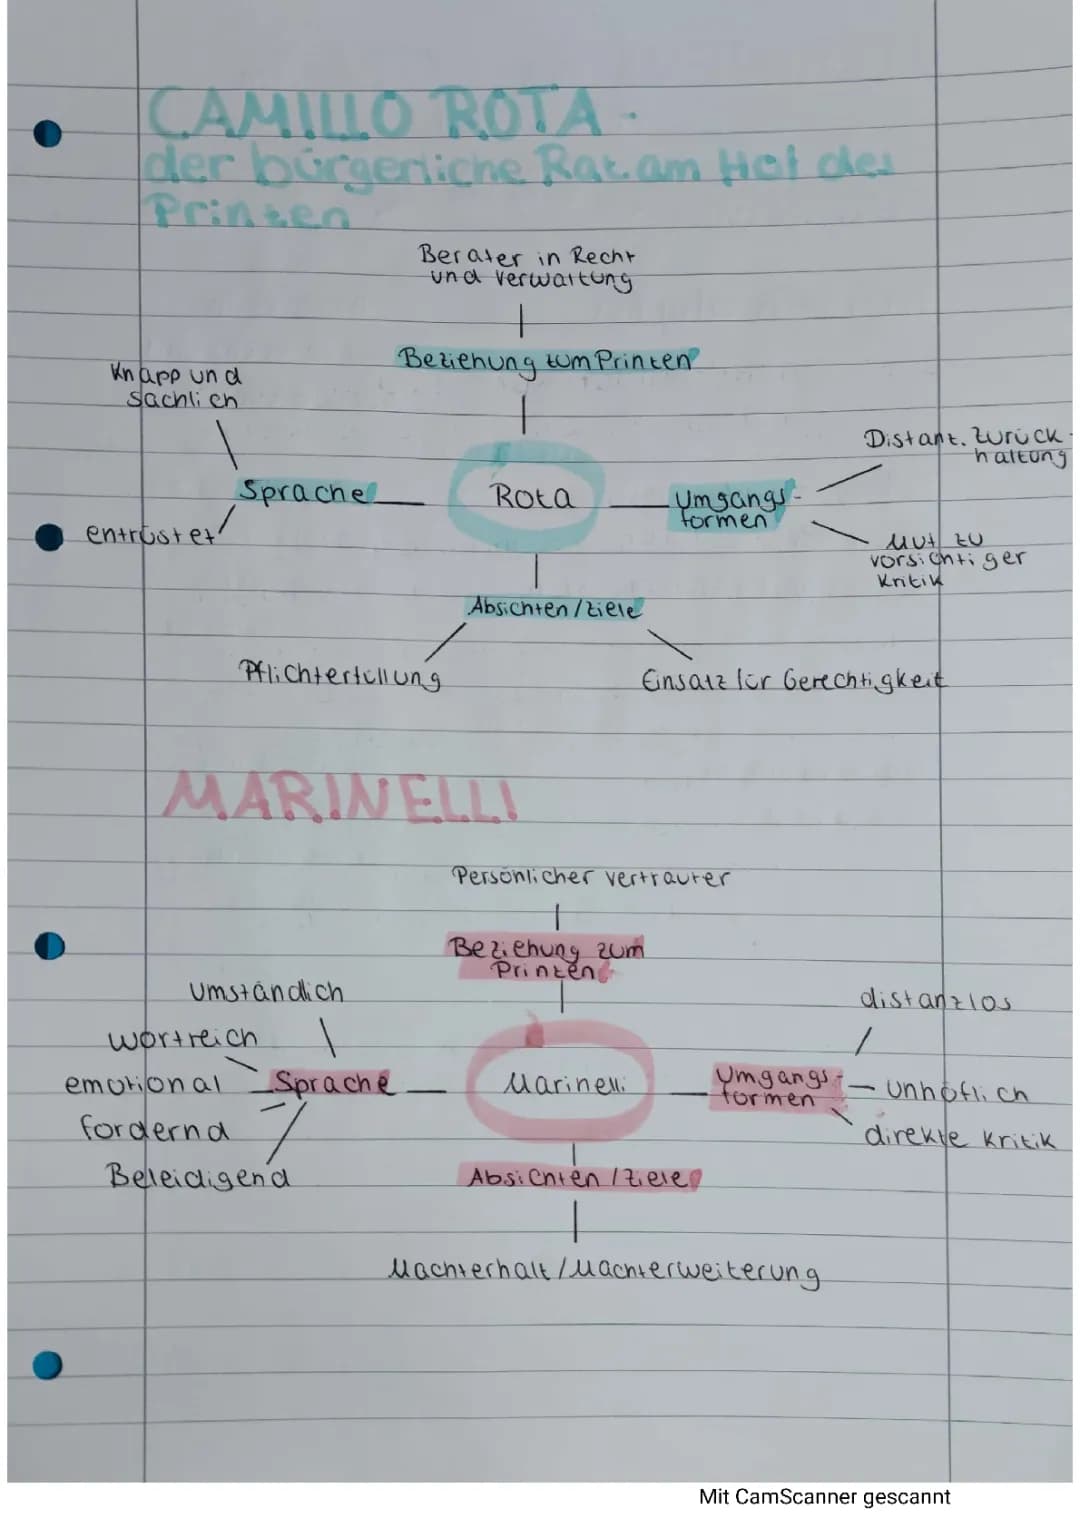 CAMILLO ROTA -
der bürgerliche Rat am Hof des
Prinzen
Berater in Recht
und Verwaltung
Beziehung zum Prinzen
Knapp und
sachlich
Distanz. Zurück-
haltung
Sprache
Rota
Umgangs-
formen
entrüstet
Mut zu
vorsichtiger
Kritik
Absichten / Ziele
Pflichterfüllung
Einsatz für Gerechtigkeit
MARINELLI
Persönlicher Vertrauter
Beziehung zum
Prinzen
Umständlich
distanzlos
wortreich
emotional
Sprache
Marinelli
Umgangs-
formen
unhöflich
fordernd
direkte Kritik
Beleidigend
Absichten / Ziele
Machterhalt / Machterweiterung
Mit CamScanner gescannt